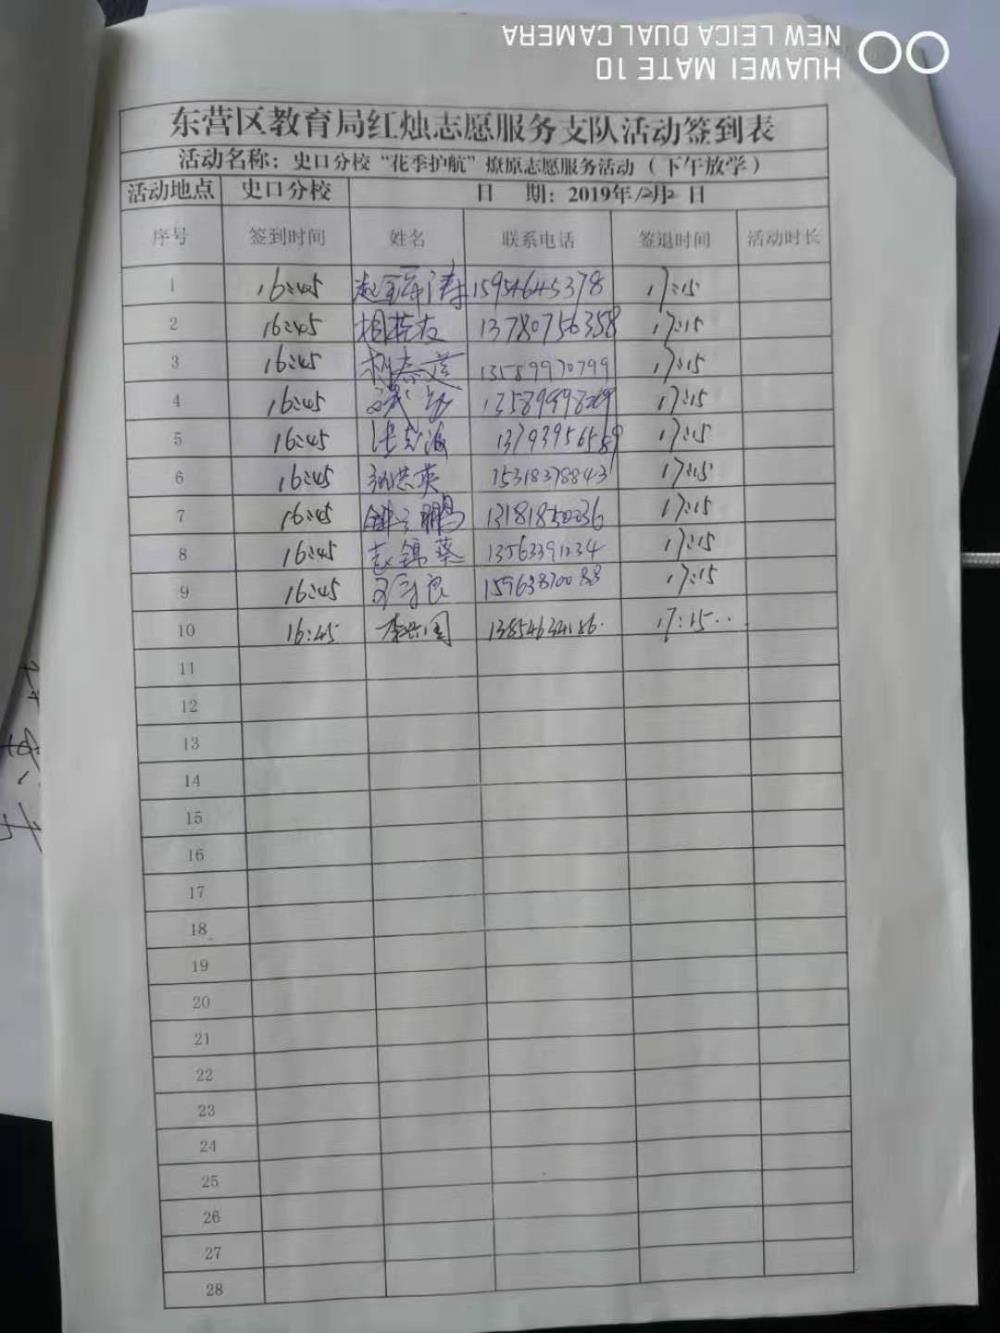 HUAWEI MATE 10
NEW LEICA DUAL CAMERA
东营区教育局红烛志愿服务支队活动签到表
活动名称：史口分校“花季护航”燎原志愿服务活动（下午放学）
活动地点 史口分校 日 期：2019年12月2日
序号 签到时间 姓名 联系电话 签退时间 活动时长
1 16:45 15954645378 17:15
2 16:45 13780756358 17:15
3 16:45 13589970799 17:15
4 16:45 17:15
5 16:45 13793956589 17:15
6 16:45 15318378843 17:15
7 16:45 17:15
8 16:45 赵锦蔡 13563391234 17:15
9 16:45 15963870088 17:15
10 16:45 17:15
11
12
13
14
15
16
17
18
19
20
21
22
23
24
25
26
27
28